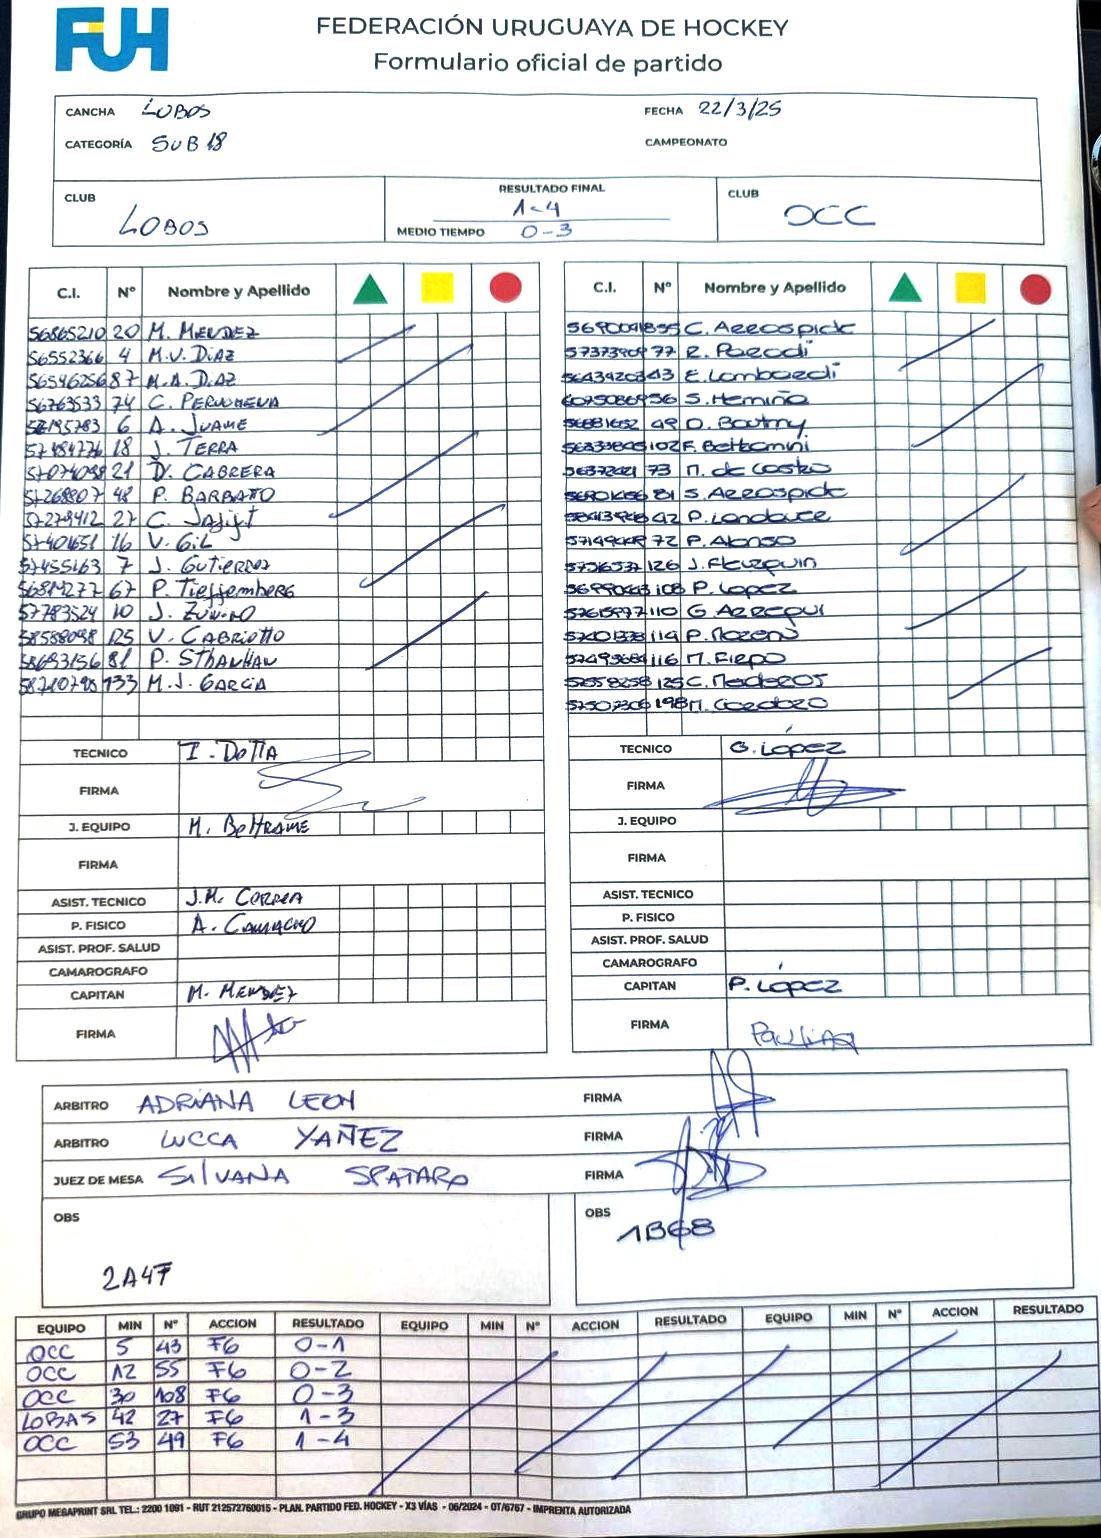 FUH
FEDERACIÓN URUGUAYA DE HOCKEY
Formulario oficial de partido
CANCHA LOBOS FECHA 22/3/25
CATEGORÍA SUB 18 CAMPEONATO
CLUB LOBOS RESULTADO FINAL 1-4 CLUB OCC
MEDIO TIEMPO 0-3
C.I. Nº Nombre y Apellido
56865210 20 M. MENDEZ
56552366 4 M.V. DIAZ
56546256 87 M.A. DIAZ
56763533 74 C.
6 A. JUAME
57484776 18 J. TERRA
57074098 21 D. CABRERA
57268807 48 P. BARBATO
57279412 27 C.
57401651 16 V. GIL
57455163 7 J. GUTIERREZ
56814277 67 P. Tieffemberg
57783524 10 J. ZUNINO
58588098 125 V. CABRIOTTO
58693156 81 P. STHANHAN
58710795 133 M.J. GARCIA
TECNICO I. DOTTA
FIRMA
J. EQUIPO M. BELTRAME
FIRMA
ASIST. TECNICO J.M. CORREA
P. FISICO A. CAMACHO
ASIST. PROF. SALUD
CAMAROGRAFO
CAPITAN M. MENDEZ
FIRMA
C.I. Nº Nombre y Apellido
55 C. Azerospide
77 R. Parodi
43 E. Lombardi
56 S. Hemiño
49 D. Boutmy
102 F. Beltramini
73 M. de Castro
81 S. Azerospide
42 P. Landauce
72 P. Alonso
126 J. Fleurquin
108 P. Lopez
110 G. Azerequi
114 P. Moreno
116 M. Fierpo
125 C. Mederos
198 M. Cardozo
TECNICO G. López
FIRMA
J. EQUIPO
FIRMA
ASIST. TECNICO
P. FISICO
ASIST. PROF. SALUD
CAMAROGRAFO
CAPITAN P. López
FIRMA Paulina
ARBITRO ADRIANA LEON FIRMA
ARBITRO LUCCA YAÑEZ FIRMA
JUEZ DE MESA SILVANA SPATARO FIRMA
OBS 2A47
OBS 1B68
EQUIPO MIN Nº ACCION RESULTADO EQUIPO MIN Nº ACCION RESULTADO EQUIPO MIN Nº ACCION RESULTADO
OCC 5 43 FG 0-1
OCC 12 55 FG 0-2
OCC 30 108 FG 0-3
LOBAS 42 27 FG 1-3
OCC 53 49 FG 1-4
GRUPO MEGAPRINT SRL TEL.: 2200 1091 - RUT 212572760015 - PLAN. PARTIDO FED. HOCKEY - X3 VÍAS - 06/2024 - OT/6767 - IMPRENTA AUTORIZADA